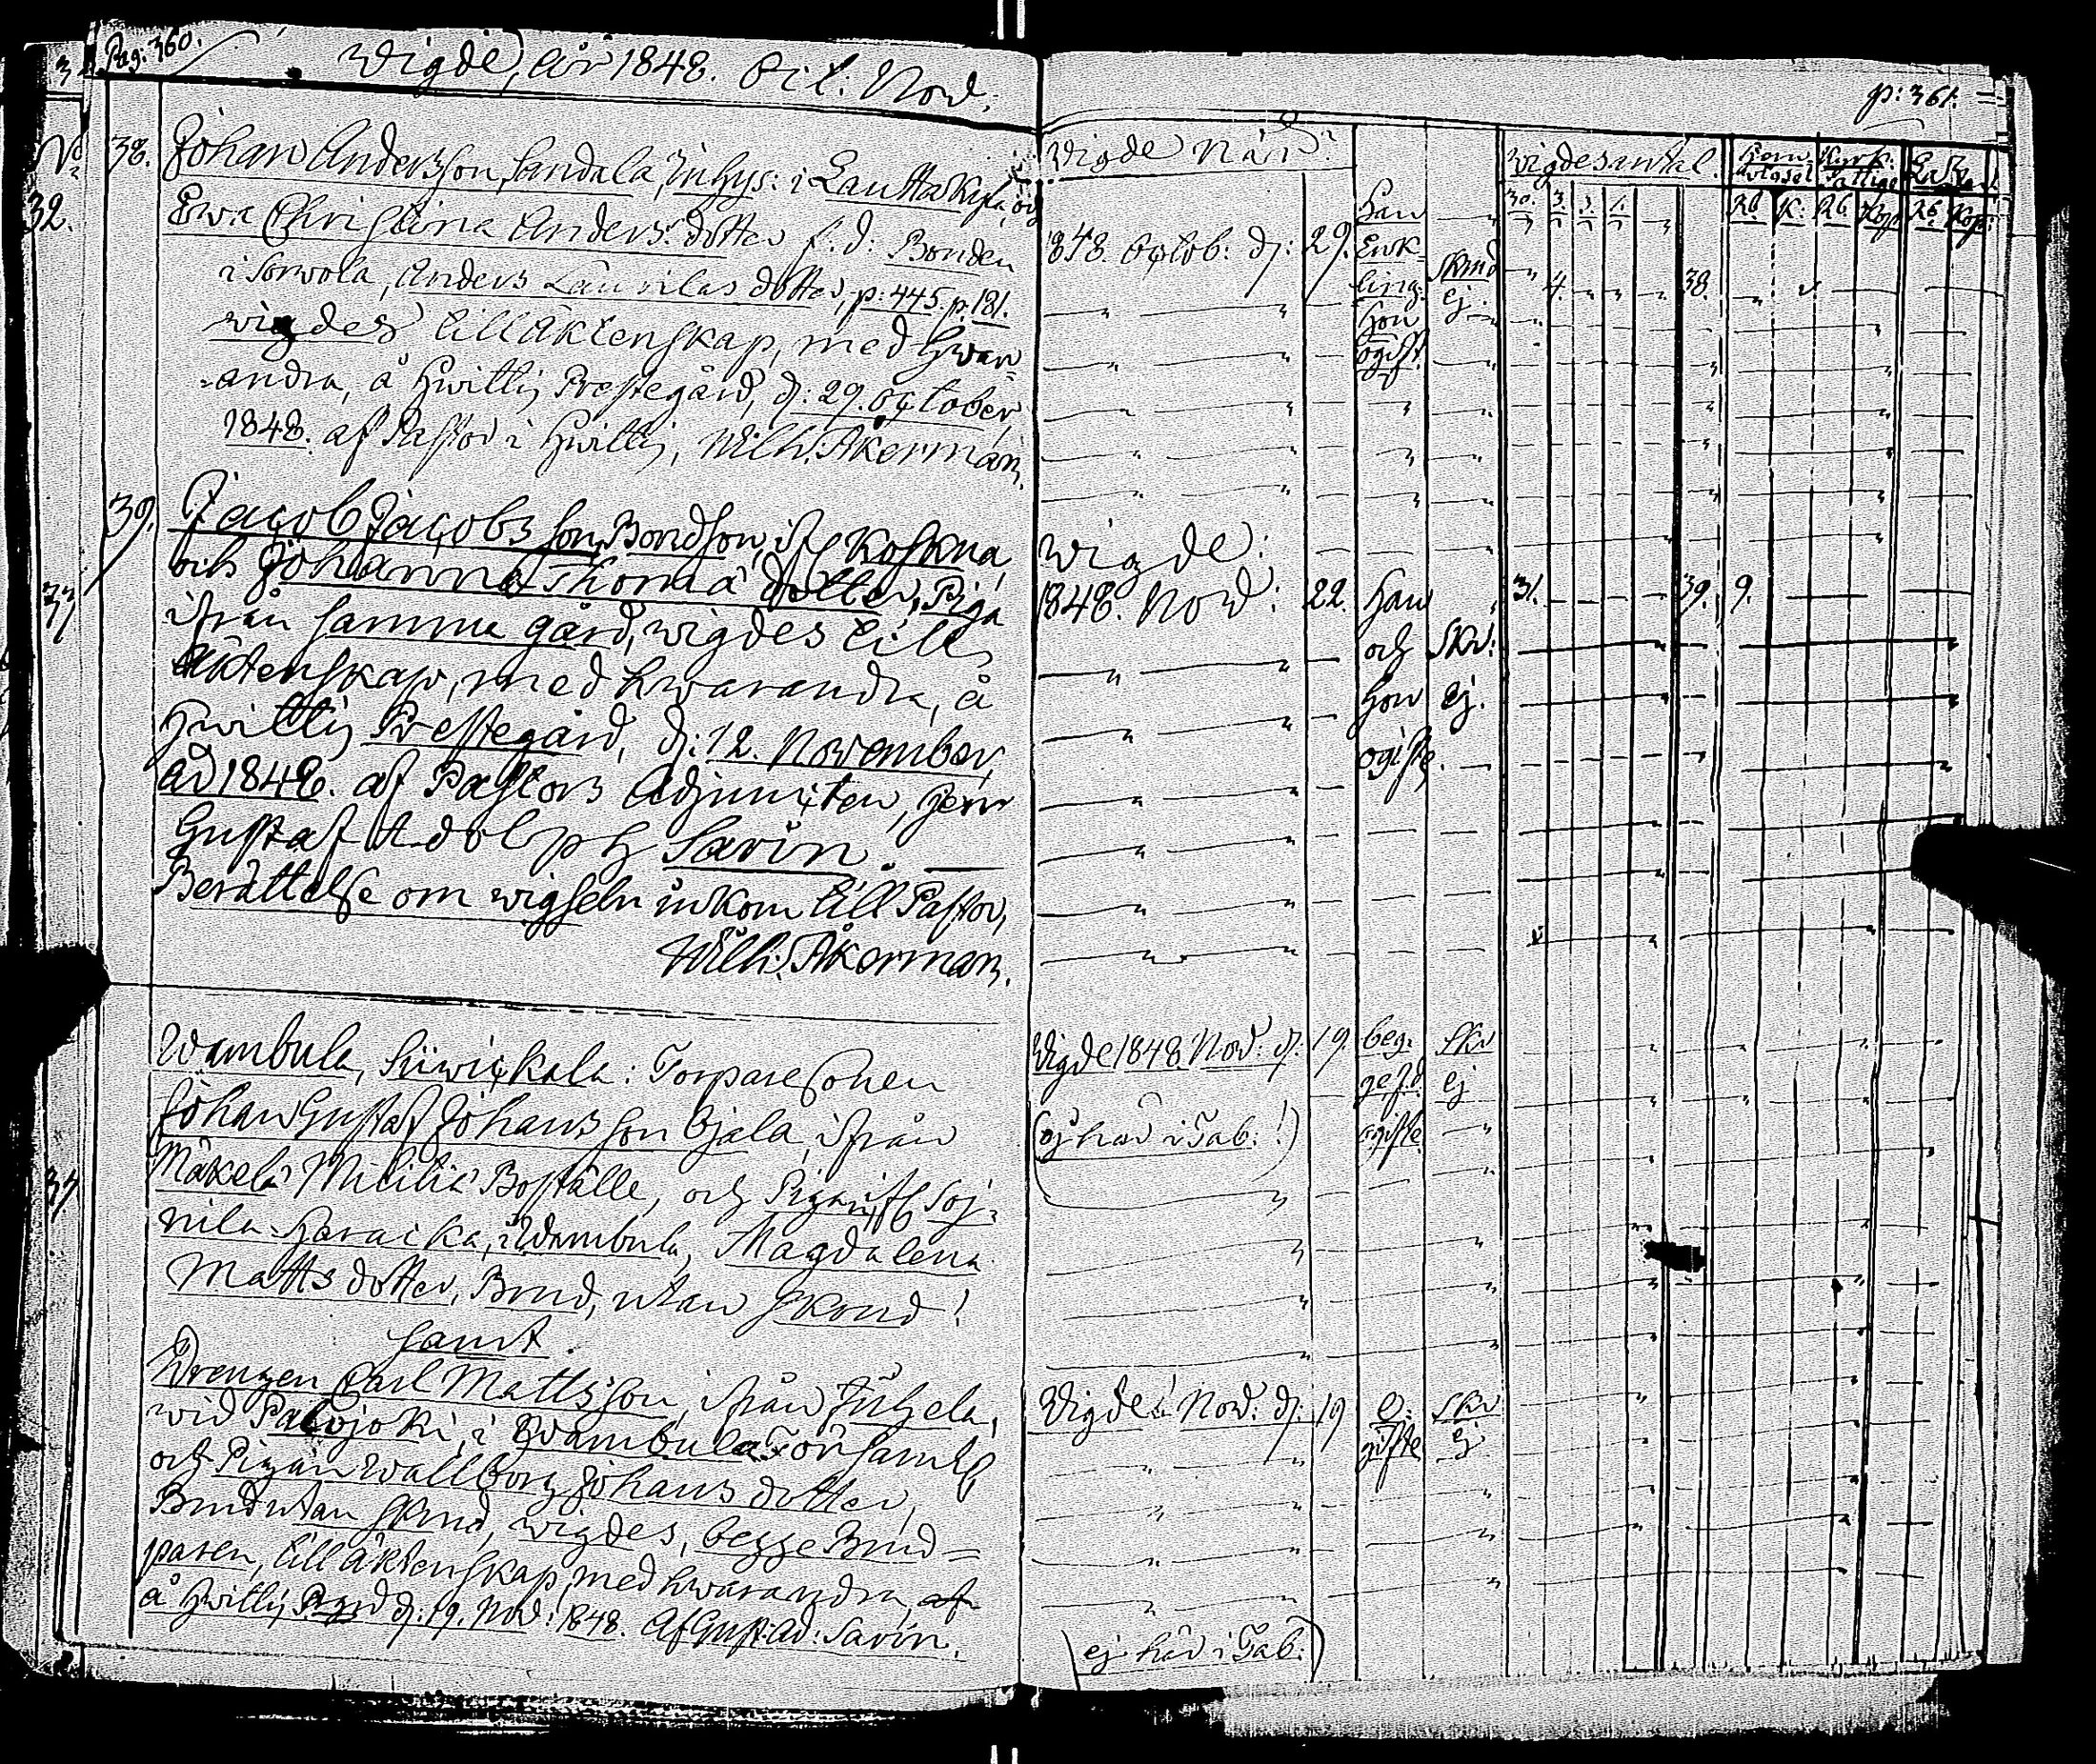 Pag: 360.
Wigde, år 1848. Oct: Nov:
38. Johan Andersson Sandala, Inhys: i Lauttakylä, och
Ewa Christina Anders dotter f. d. Bonden
i Sorvola, Anders Laurilas dotter, p: 445. p. 181.
wigdes till äktenskap, med hwar-
andra, å Hwittis Prestegård, d: 29. October,
1848. af Pastor i Hwittis, Wilh: Åkerman,
39. Jacob Jacobsson, Bondson, ifr Koskua,
och Johanna Thoma dotter, Piga
ifrån samma gård, wigdes till
äktenskap, med hwarandra, å
Hwittis Prestegård, d: 12. November,
år 1848. af Pastors Adjuncten, Herr
Gustaf Adolph Savin.
Berättelse om wigseln inkom till Pastor,
Wilh: Åkerman.
Wambula, : Torparesonen
Johan Gustaf Johansson Ojala, ifrån
Mäkelä Militiä Boställe, och Pigan, ifr Soi-
nila i Wambula, Magdalena
Mattsdotter, Brud, utan skrud!
samt.
Drengen Carl Mattsson, ifrån
wid Palojoki, i Wambula
och Pigan Wallborg Johans dotter,
Brud utan skrud, wigdes, begge Brud-
paren, till äktenskap, med hwarandra,
å Hwittis d: 19. Nov: 1848. Af Gust: Ad: Savin.
p: 361.
Wigde när?
Wigdes antal.
1848. Octob: d: 29.
Han
Enk-
ling.
Hon
ogift.
Skrud
ej.
4.
38.
Wigde:
1848. Nov: 22.
Han
och
Hon
ogifte.
Skr:
ej.
31.
39. 9.
Wigde 1848. Nov: d. 19.
ogifte
Skr
ej
(ej här i Tab:!)
Wigde Nov: d: 19
O:
gifte
Skr
ej
(ej här i Tab:)